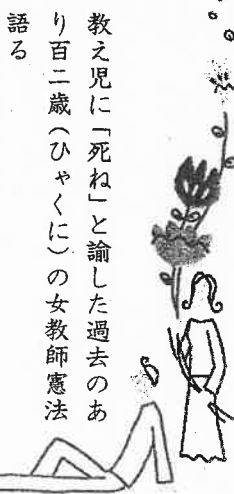 教え児に「死ね」と諭した過去のあ
り百二歳（ひゃくに）の女教師憲法
語る